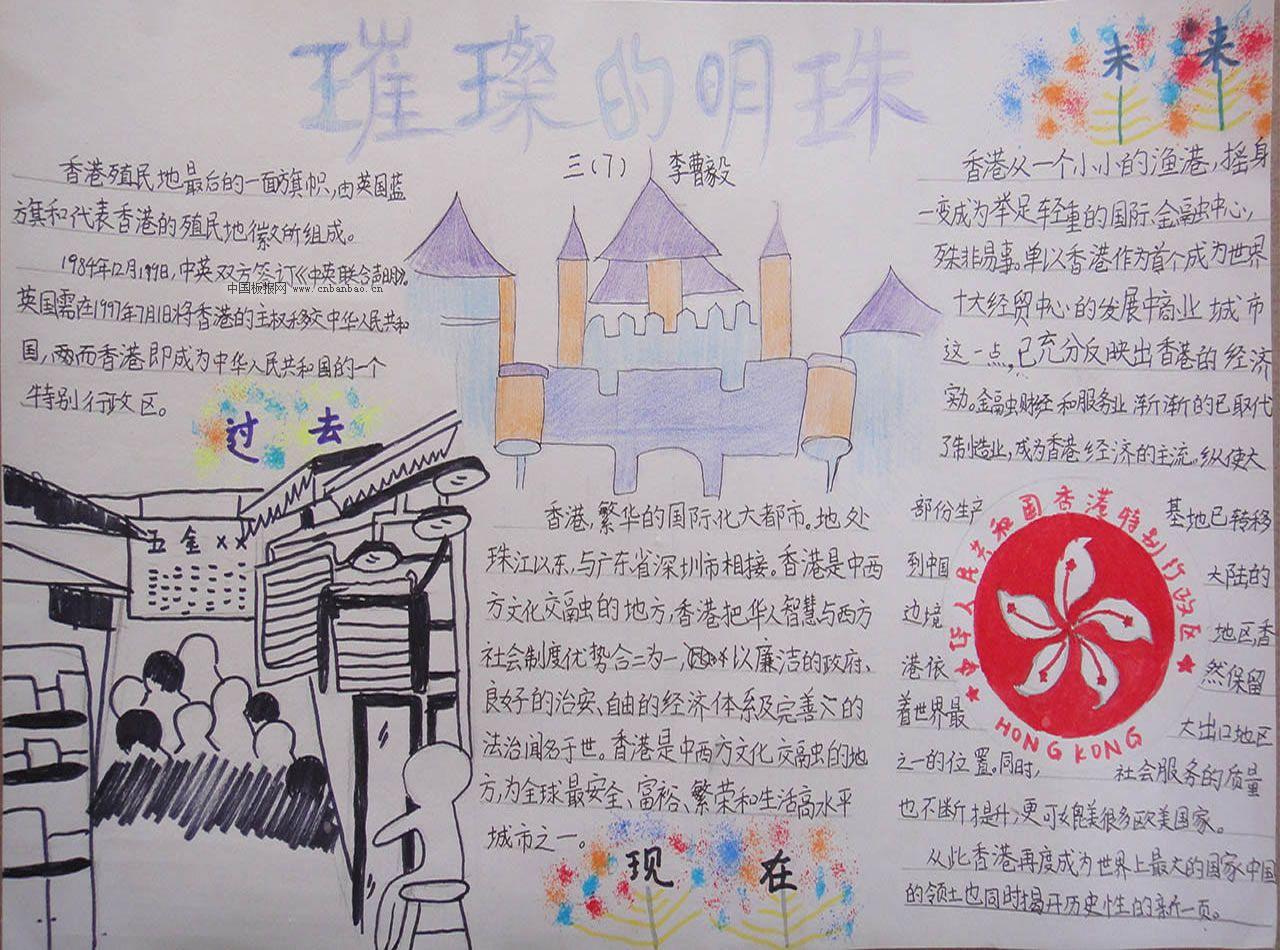 璀璨的明珠
三(7) 李曹毅
香港殖民地最后的一面旗帜,由英国蓝
旗和代表香港的殖民地徽所组成。
1984年12月19日,中英双方签订《中英联合声明》。
中国板报网 www.cnbanbao.cn
英国需在1997年7月1日将香港的主权移交中华人民共和
国,而香港即成为中华人民共和国的一个
特别行政区。
过去
五金××
香港,繁华的国际化大都市。地处
珠江以东,与广东省深圳市相接。香港是中西
方文化交融的地方,香港把华人智慧与西方
社会制度优势合二为一,以廉洁的政府、
良好的治安、自由的经济体系及完善的
法治闻名于世。香港是中西方文化交融的地
方,为全球最安全、富裕、繁荣和生活高水平
城市之一。
现在
未来
香港从一个小小的渔港,摇身
一变成为举足轻重的国际金融中心,
殊非易事。单以香港作为首个成为世界
十大经贸中心的发展中商业城市
这一点,已充分反映出香港的经济
金融财经和服务业渐渐的已取代
了制造业,成为香港经济的主流。纵使大
部份生产 基地已转移
到中国 大陆的
边境 地区,香
港依 然保留
着世界最 大出口地区
之一的位置。同时, 社会服务的质量
也不断提升,更可媲美很多欧美国家。
从此香港再度成为世界上最大的国家中国
的领土也同时揭开历史性的新一页。
中华人民共和国香港特别行政区
HONG KONG